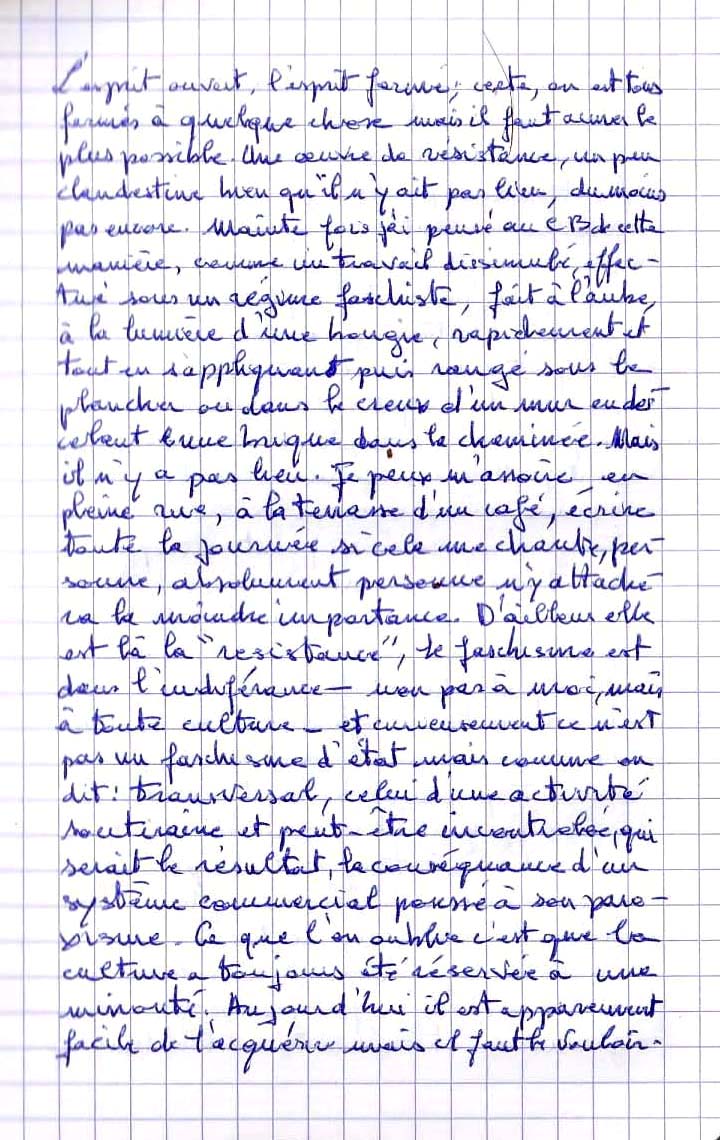 L'esprit ouvert, l'esprit fermé; certe, on est tous
fermés à quelque chose mais il faut aimer le
plus possible. Une œuvre de résistance, un peu
clandestine bien qu'il n'y ait pas lieu, du moins
pas encore. Mainte fois j'ai pensé au CB de cette
manière, comme un travail dissimulé, effec-
tué sous un régime faschiste, fait à l'aube,
à la lumière d'une bougie, rapidement et
tout en s'appliquant puis rangé sous le
plancher ou dans le creux d'un mur en des-
celant une brique dans la cheminée. Mais
il n'y a pas lieu. Je peux m'assoir en
pleine rue, à la terrasse d'un café, écrire
toute la journée si cela me chante, per-
sonne, absolument personne n'y attache-
ra la moindre importance. D'ailleur elle
est là la "resistance", le faschisme est
dans l'indiférance — non pas à moi, mais
à toute culture — et curieusement ce n'est
pas un faschisme d'état mais comme on
dit: transversal, celui d'une activité
souterraine et peut-être incontrolée, qui
serait le résultat, la conséquance d'un
système commercial poussé à son paro-
xisme. Ce que l'on oublie c'est que la
culture a toujours été réservée à une
minorité. Aujourd'hui il est apparemment
facile de l'acquérir mais il faut le vouloir.